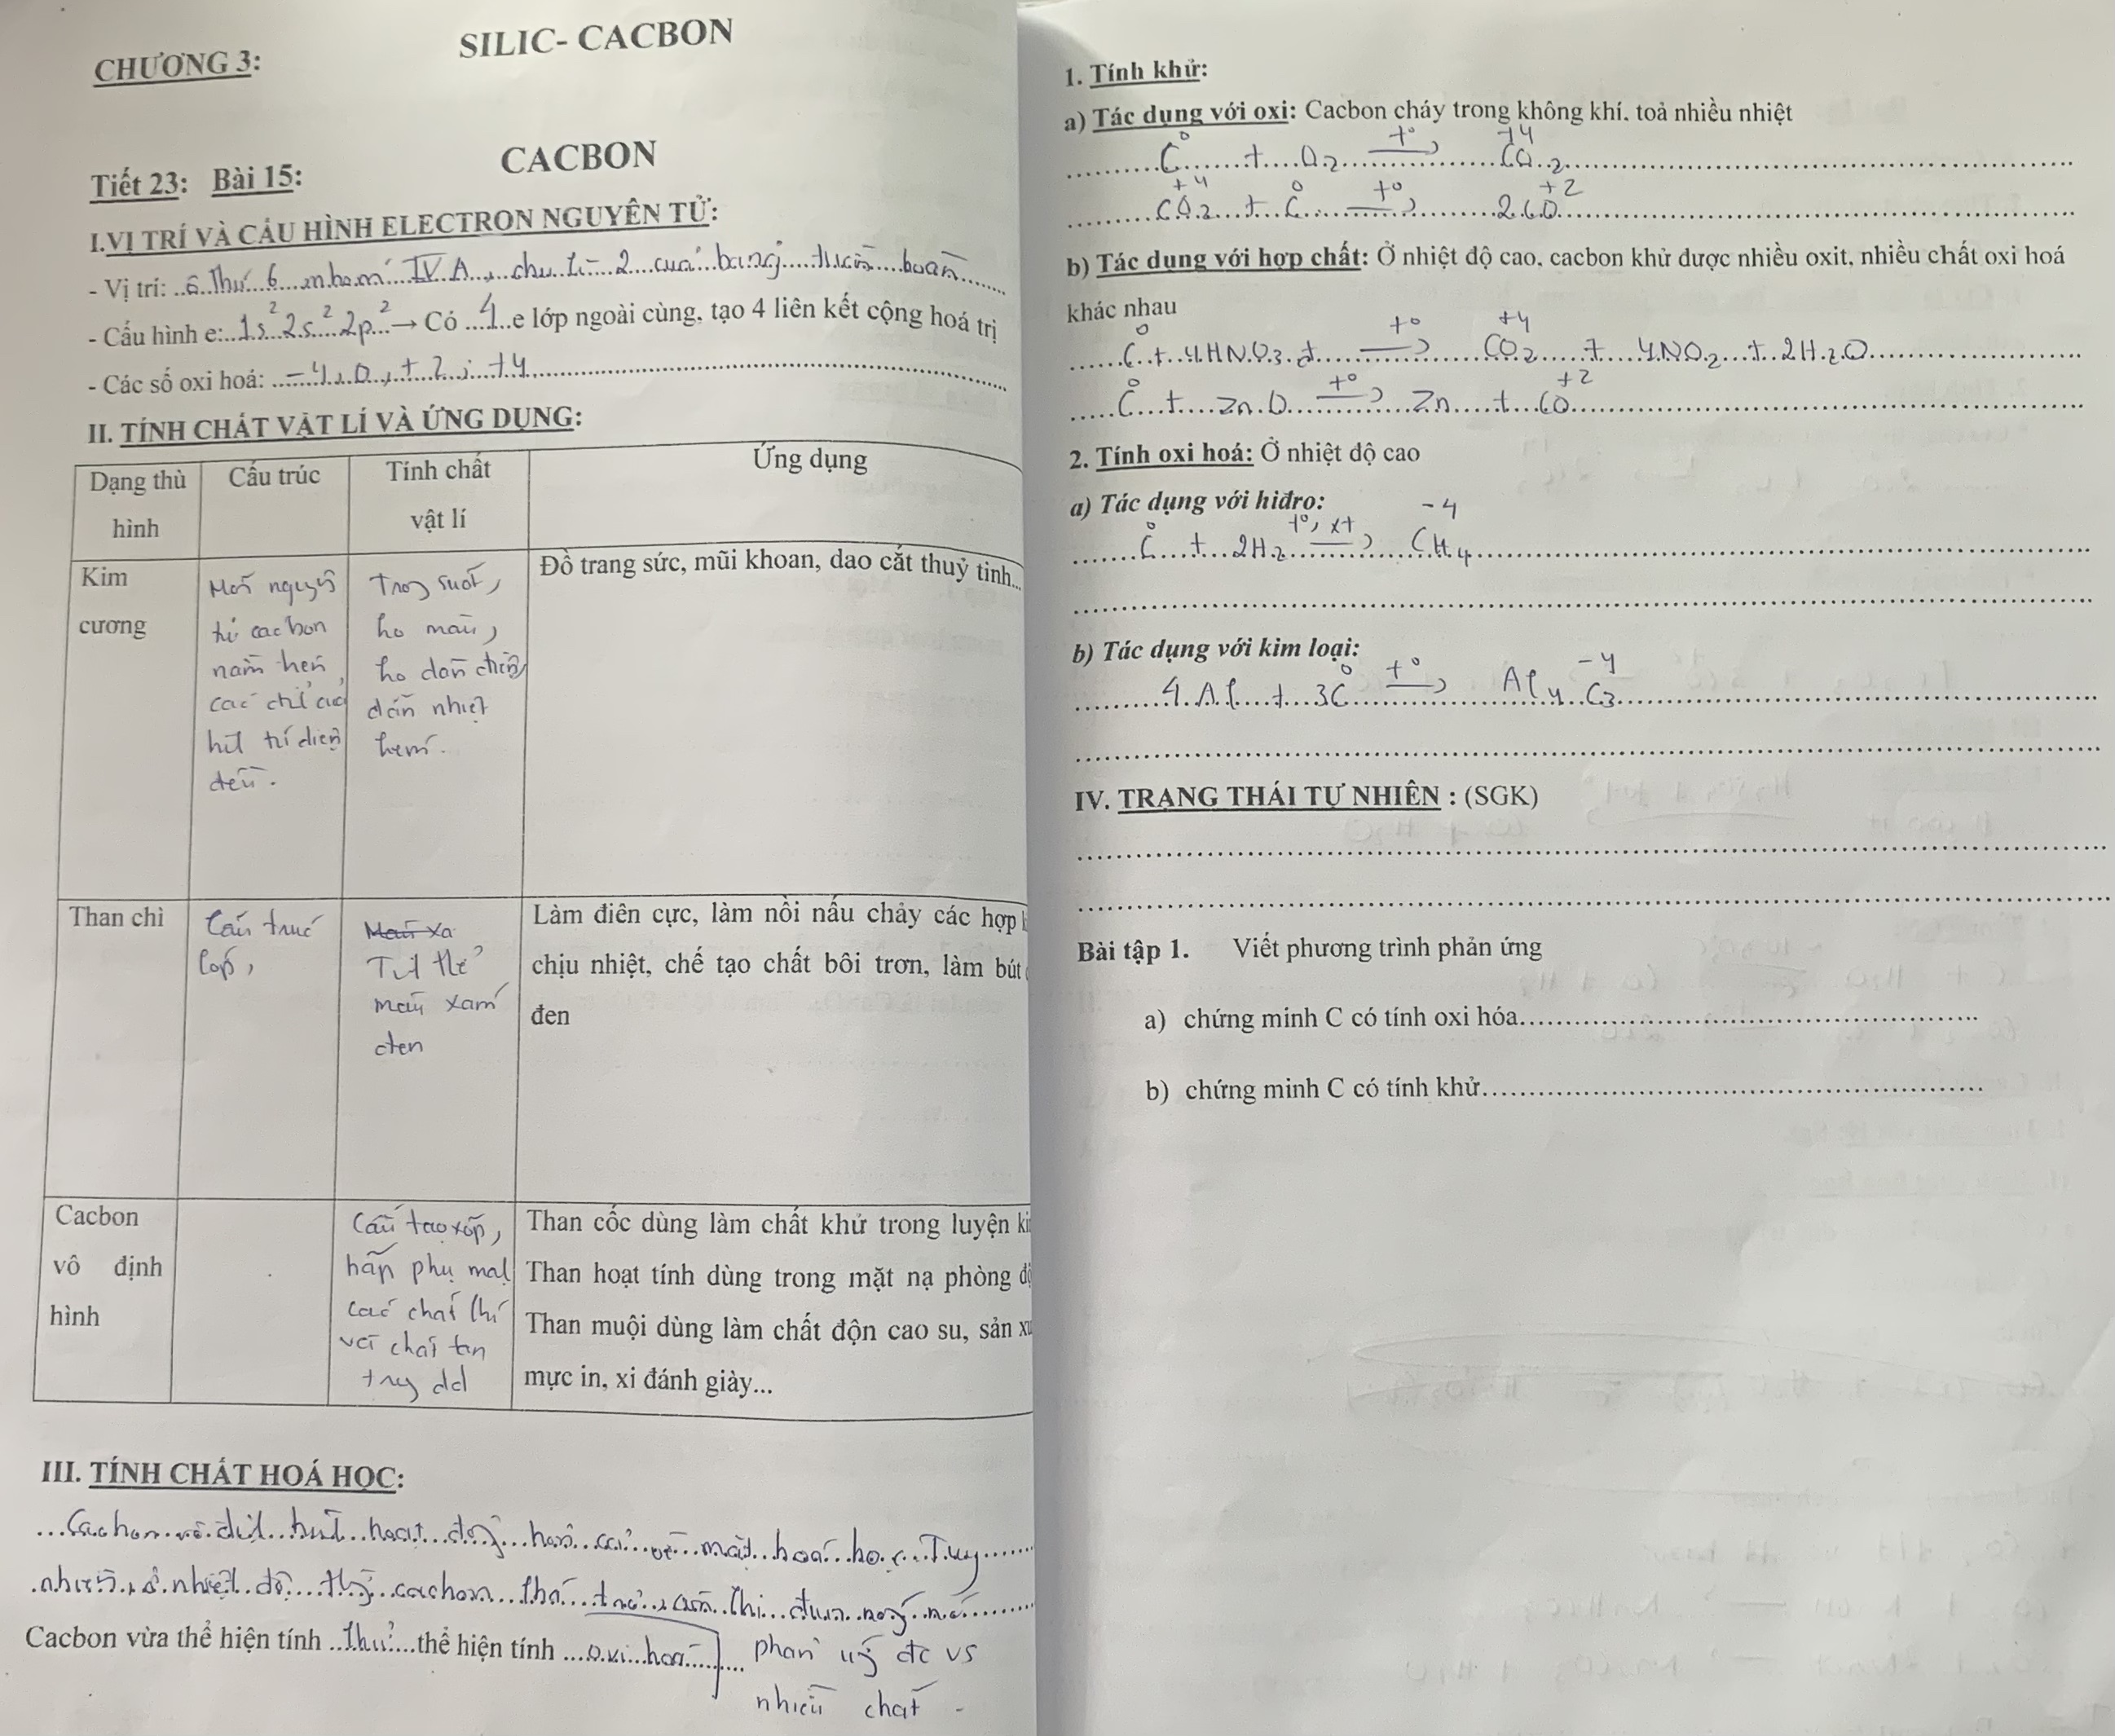 CHƯƠNG 3:
SILIC- CACBON
Tiết 23: Bài 15:
CACBON
I.VỊ TRÍ VÀ CẤU HÌNH ELECTRON NGUYÊN TỬ:
- Vị trí: ..ô thứ 6 nhóm IVA, chu kì 2 của bảng tuần hoàn
- Cấu hình e: 1s² 2s² 2p² → Có 4 e lớp ngoài cùng, tạo 4 liên kết cộng hoá trị
- Các số oxi hoá: -4, 0, +2, +4
II. TÍNH CHẤT VẬT LÍ VÀ ỨNG DỤNG:
Dạng thù hình
Cấu trúc
Tính chất vật lí
Ứng dụng
Kim cương
Mỗi nguyên
tử cacbon
nằm trên
các
hình tứ diện
đều.
Trong suốt,
ko màu,
ko dẫn điện,
dẫn nhiệt
kém.
Đồ trang sức, mũi khoan, dao cắt thuỷ tinh...
Than chì
Cấu trúc
lớp,
Tinh thể
màu xám
đen
Làm điên cực, làm nồi nấu chảy các hợp
chịu nhiệt, chế tạo chất bôi trơn, làm bút
đen
Cacbon vô định hình
Cấu tạo xốp,
hấp phụ mạ
các chất khí
và chất tan
trong dd
Than cốc dùng làm chất khử trong luyện ki
Than hoạt tính dùng trong mặt nạ phòng đ
Than muội dùng làm chất độn cao su, sản x
mực in, xi đánh giày...
III. TÍNH CHẤT HOÁ HỌC:
Cacbon vô định hình hoạt động hơn cả về mặt hoá học. Tuy
nhiên, ở nhiệt độ thường cacbon khá trơ, còn khi đun nóng nó
phản ứng đc vs
nhiều chất
Cacbon vừa thể hiện tính khử thể hiện tính oxi hoá
1. Tính khử:
a) Tác dụng với oxi: Cacbon cháy trong không khí. toả nhiều nhiệt
C⁰ + O₂ →(t°) C⁺⁴O₂
C⁺⁴O₂ + C⁰ →(t°) 2C⁺²O
b) Tác dụng với hợp chất: Ở nhiệt độ cao, cacbon khử được nhiều oxit, nhiều chất oxi hoá
khác nhau
C⁰ + 4HNO₃ đ →(t°) C⁺⁴O₂ + 4NO₂ + 2H₂O
C⁰ + ZnO →(t°) Zn + C⁺²O
2. Tính oxi hoá: Ở nhiệt độ cao
a) Tác dụng với hiđro:
C⁰ + 2H₂ →(t°, xt) C⁻⁴H₄
b) Tác dụng với kim loại:
4Al + 3C⁰ →(t°) Al₄C⁻⁴₃
IV. TRẠNG THÁI TỰ NHIÊN : (SGK)
Bài tập 1. Viết phương trình phản ứng
a) chứng minh C có tính oxi hóa
b) chứng minh C có tính khử